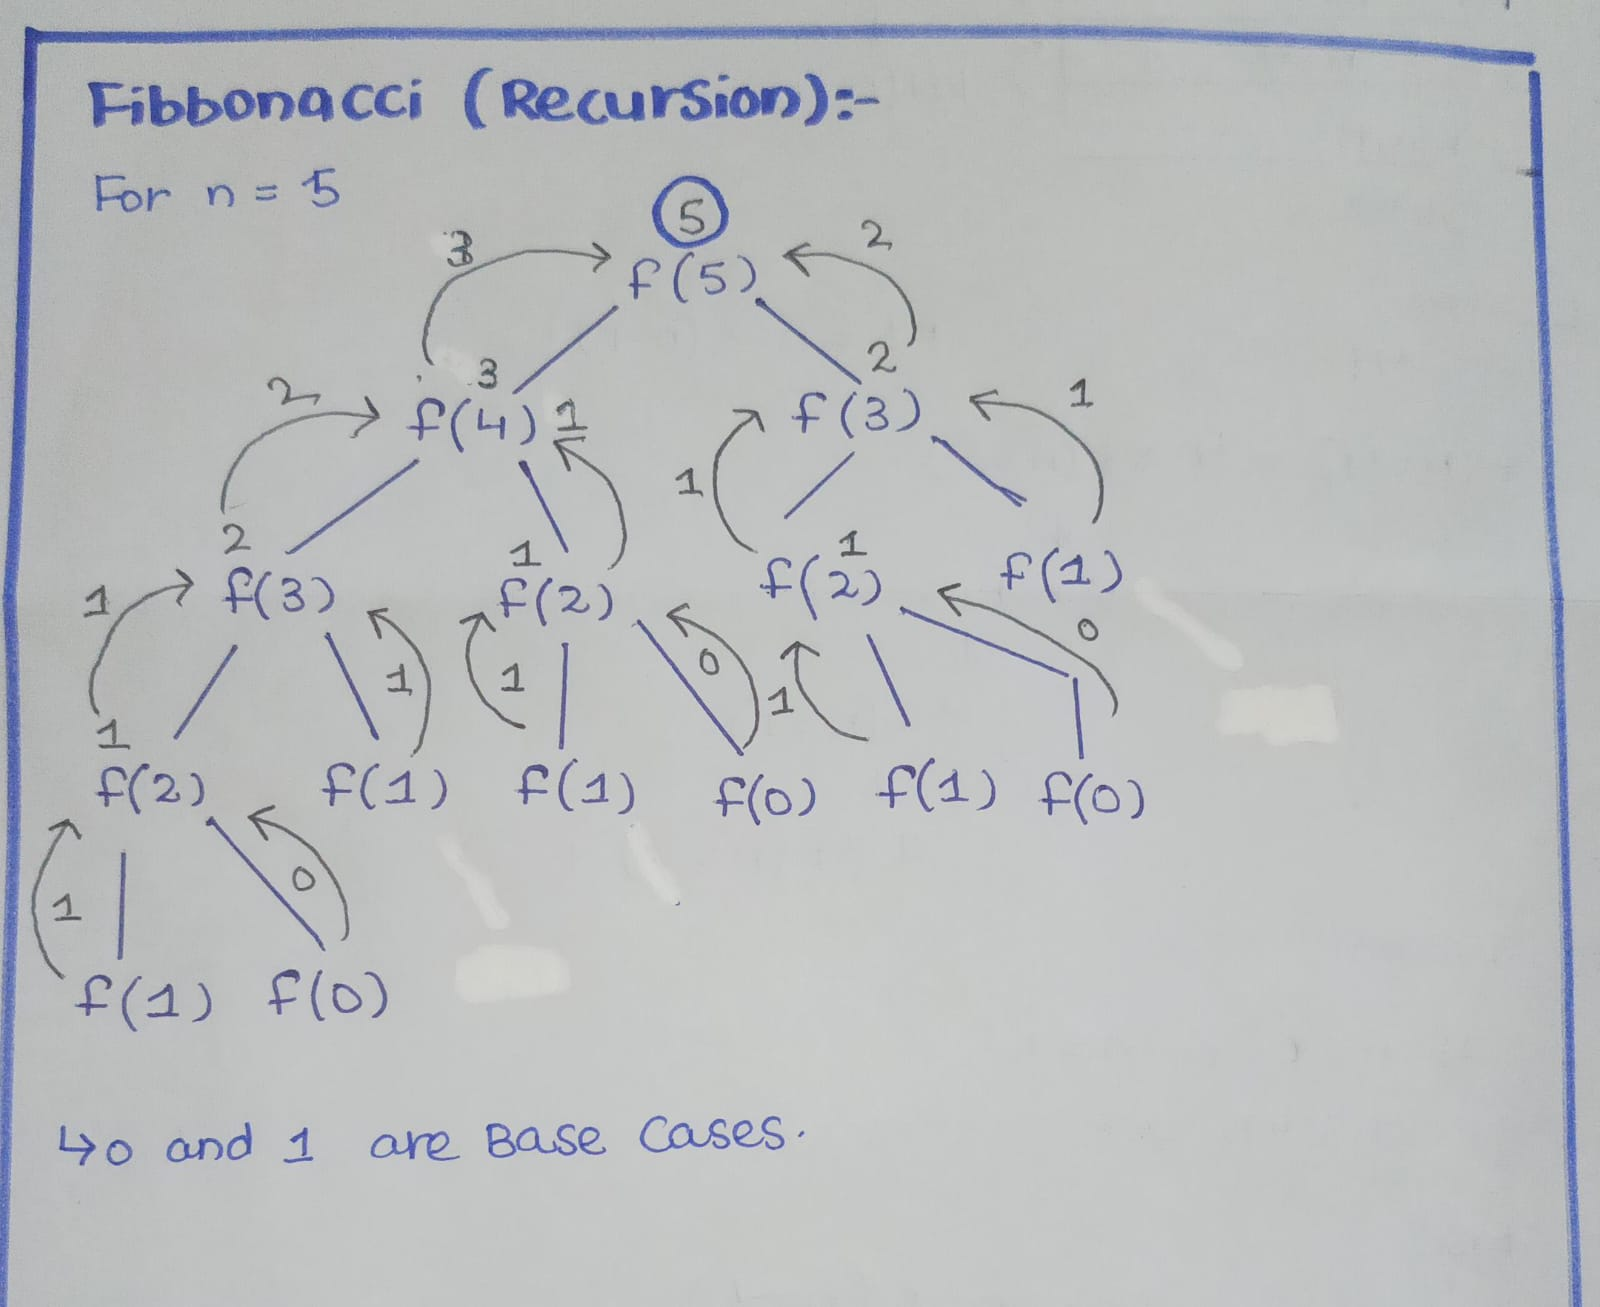 Fibbonacci (Recursion):-
For n = 5
5
3 2
f(5)
3 2
2 f(4) 1 f(3) 1
1
2 1 1
1 f(3) f(2) f(2) f(1)
1 1 0 1 0
1
f(2) f(1) f(1) f(0) f(1) f(0)
1 0
f(1) f(0)
↳ 0 and 1 are Base Cases.